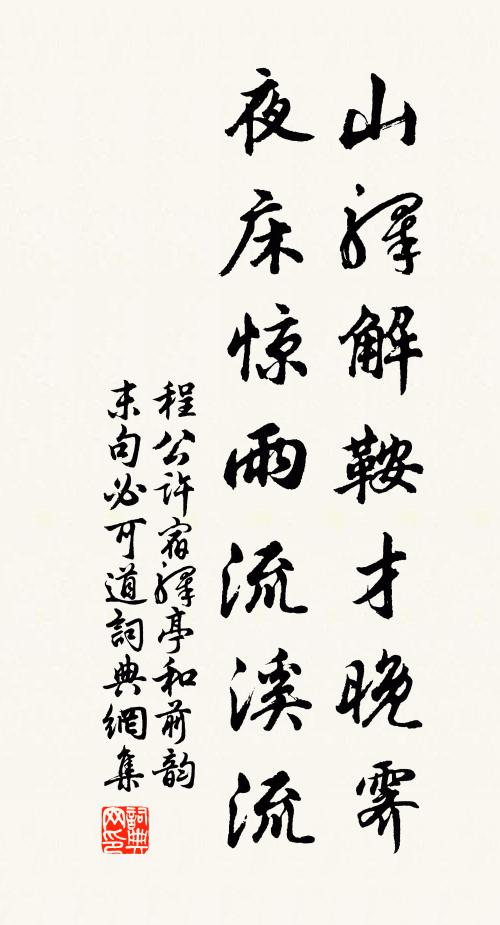 山驛解鞍才晚霽
夜床惊雨流溪流
程公許宿驛亭和前韵
末句必可道詞典網集
詞典网印